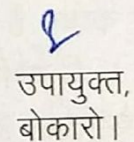 उपायुक्त,
बोकारो।